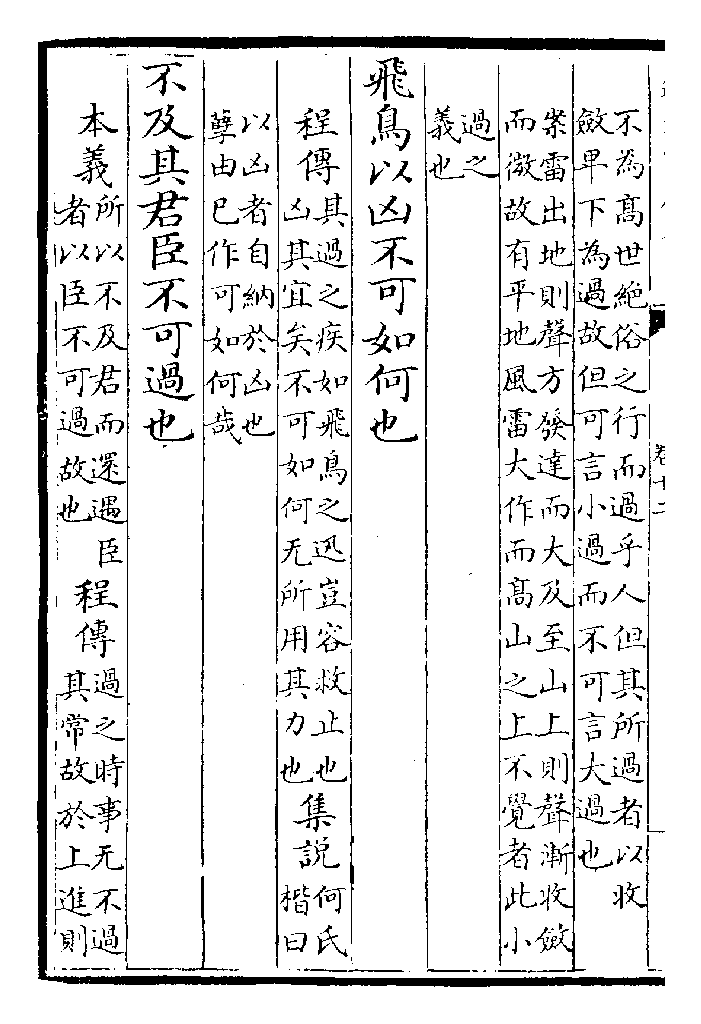 不為髙世絶俗之行而過乎人但其所過者以收
斂卑下為過故但可言小過而不可言大過也
案雷出地則聲方發達而大及至山上則聲漸收斂
而微故有平地風雷大作而髙山之上不覺者此小
過之
義也
飛鳥以凶不可如何也
程傳其過之疾如飛鳥之迅豈容救止也
凶其宜矣不可如何无所用其力也
集説何氏
楷曰
以凶者自納於凶也
孽由己作可如何哉
不及其君臣不可過也
本義所以不及君而還遇臣
者以臣不可過故也
程傳過之時事无不過
其常故於上進則
卷十二